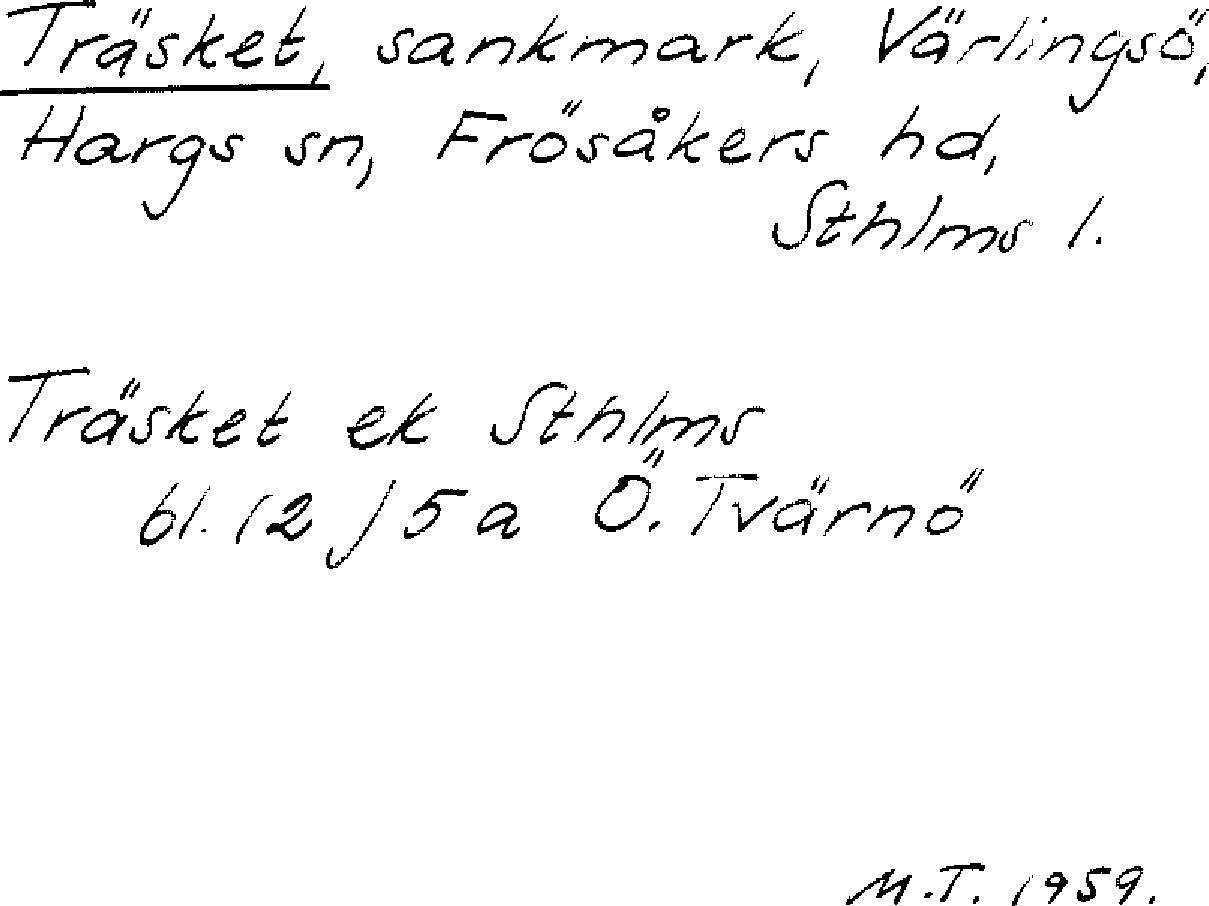 Träsket, sankmark, Värlingsö,
Hargs sn, Frösåkers hd,
Sthlms l.
Träsket ek Sthlms
bl. 12 J 5 a Ö. Tvärnö
M.T. 1959.